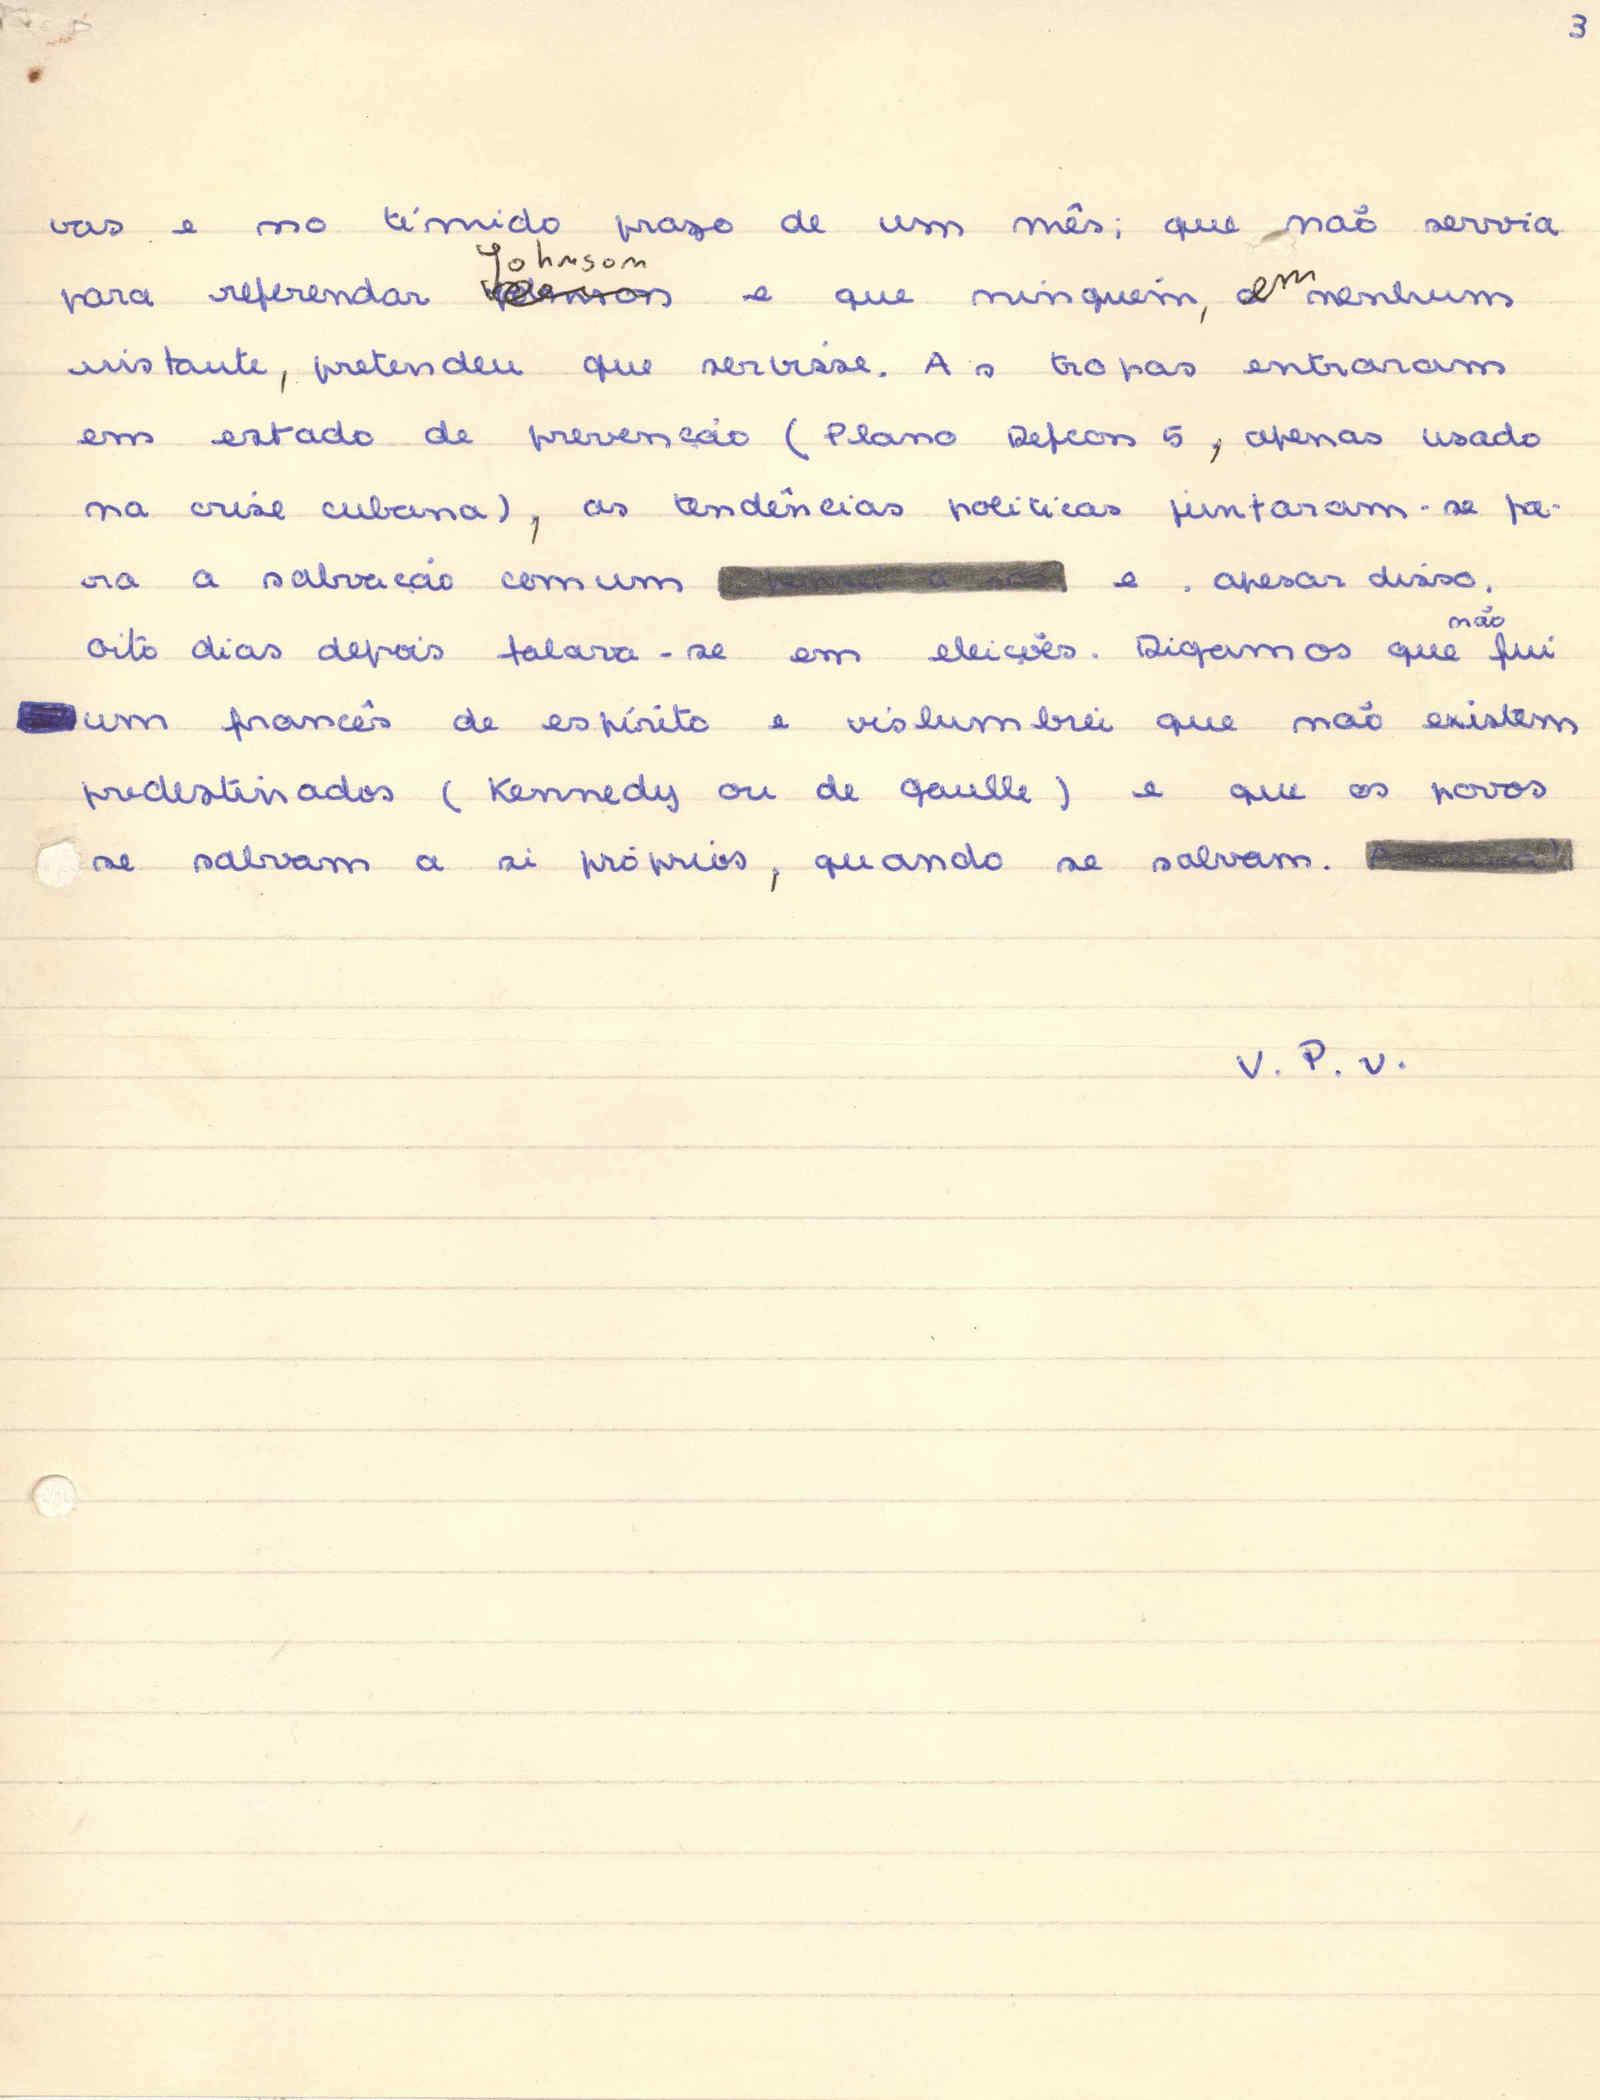 3
vas e no tímido prazo de um mês; que não servia
Johnson
para referendar e que ninguém, em nenhum
instante, pretendeu que servisse. As tropas entraram
em estado de prevenção (Plano Defcon 5, apenas usado
na crise cubana), as tendências políticas juntaram-se pa-
ra a salvação comum e, apesar disso,
não
oito dias depois falava-se em eleições. Digamos que fui
um francês de espírito e vislumbrei que não existem
predestinados (Kennedy ou de Gaulle) e que os povos
se salvam a si próprios, quando se salvam.
V. P. V.